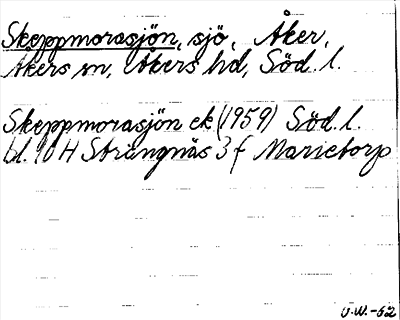 Skeppmorasjön, sjö, Åker,
Åkers sn, Åkers hd, Söd. l.
Skeppmorasjön ek. (1959) Söd. l.
bl. 10 H Strängnäs 3 f Marietorp
U.W.-62